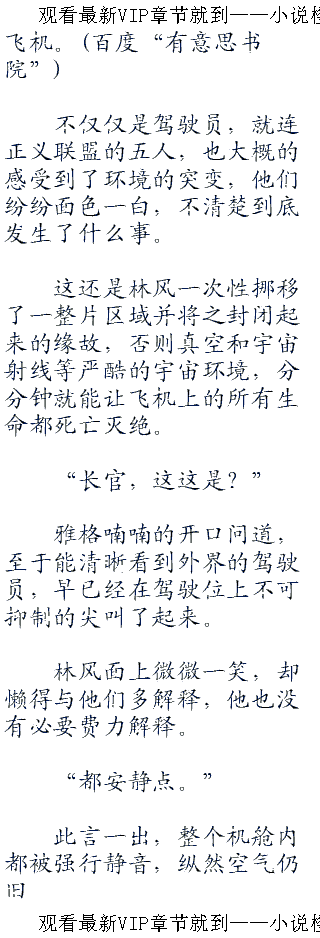 观看最新VIP章节就到——小说检
飞机。(百度“有意思书
院”)
不仅仅是驾驶员，就连
正义联盟的五人，也大概的
感受到了环境的突变，他们
纷纷面色一白，不清楚到底
发生了什么事。
这还是林风一次性挪移
了一整片区域并将之封闭起
来的缘故，否则真空和宇宙
射线等严酷的宇宙环境，分
分钟就能让飞机上的所有生
命都死亡灭绝。
“长官，这这是？”
雅格喃喃的开口问道，
至于能清晰看到外界的驾驶
员，早已经在驾驶位上不可
抑制的尖叫了起来。
林风面上微微一笑，却
懒得与他们多解释，他也没
有必要费力解释。
“都安静点。”
此言一出，整个机舱内
都被强行静音，纵然空气仍
旧
观看最新VIP章节就到——小说检